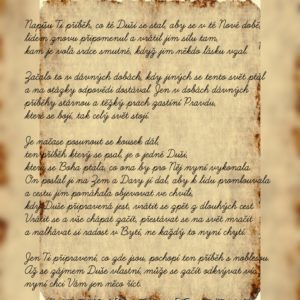 Napíšu Ti příběh, co té Duši se stal, aby se v té Nové době,
lidem znovu připomenul a vrátil jim sílu tam,
kam je volá srdce smutné, když jim někdo lásku vzal.
Začalo to v dávných dobách, kdy jiných se tento svět ptal
a na otázky odpovědi dostával. Jen v dobách dávných
příběhy stárnou a těžký prach zastíní Pravdu,
které se bojí, tak celý svět stojí.
Je načase posunout se kousek dál,
ten příběh který se psal, je o jedné Duši,
která se Boha ptala, co ona by pro Něj nyní vykonala.
On poslal ji na Zem a Dary jí dal, aby k lidu promlouvala
a cestu jim pomáhala objevovat ve chvíli,
kdy Duše připravená jest, vrátit se zpět z dlouhých cest.
Vrátit se a vše chápat začít, přestávat se na svět mračit
a nalhávat si radost v Bytí, ne každý to nyní chytí.
Jen Ti připravení, co zde jsou, pochopí ten příběh s noblesou.
Až se zájmem Duše vlastní, může se začít odkrývat vše,
nyní chci Vám jen něco říct.